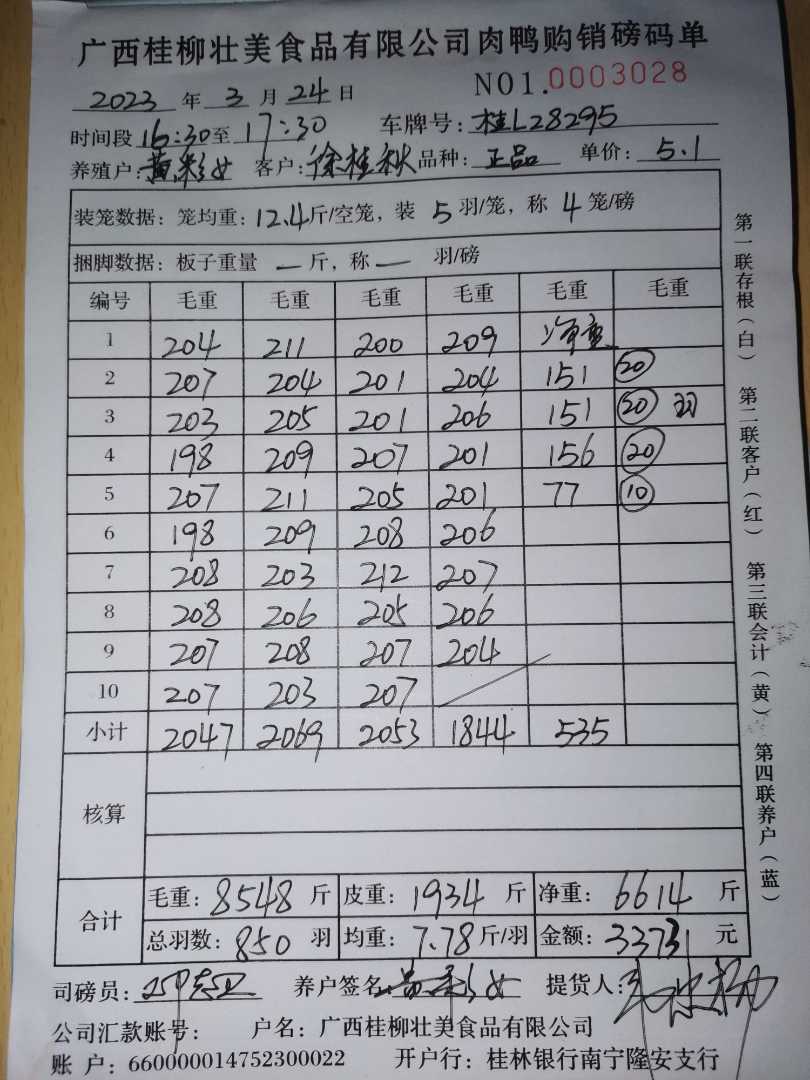 广西桂柳壮美食品有限公司肉鸭购销磅码单
NO1.0003028
2023 年 3 月 24 日
时间段 16:30 至 17:30 车牌号: 桂L28295
养殖户: 黄彩女 客户: 徐桂秋 品种: 正品 单价: 5.1
装笼数据: 笼均重: 12.4 斤/空笼, 装 5 羽/笼, 称 4 笼/磅
捆脚数据: 板子重量 — 斤, 称 — 羽/磅
编号 毛重 毛重 毛重 毛重 毛重 毛重
1 204 211 200 209 净重
2 207 204 201 204 151 20
3 203 205 201 206 151 20 羽
4 198 209 207 201 156 20
5 207 211 205 201 77 10
6 198 209 208 206
7 208 203 212 207
8 208 206 205 206
9 207 208 207 204
10 207 203 207
小计 2047 2069 2053 1844 535
核算
合计 毛重: 8548 斤 皮重: 1934 斤 净重: 6614 斤
总羽数: 850 羽 均重: 7.78 斤/羽 金额: 33731 元
司磅员: 养户签名: 黄彩女 提货人:
公司汇款账号: 户名: 广西桂柳壮美食品有限公司
账 户: 660000014752300022 开户行: 桂林银行南宁隆安支行
第一联存根(白) 第二联客户(红) 第三联会计(黄) 第四联养户(蓝)